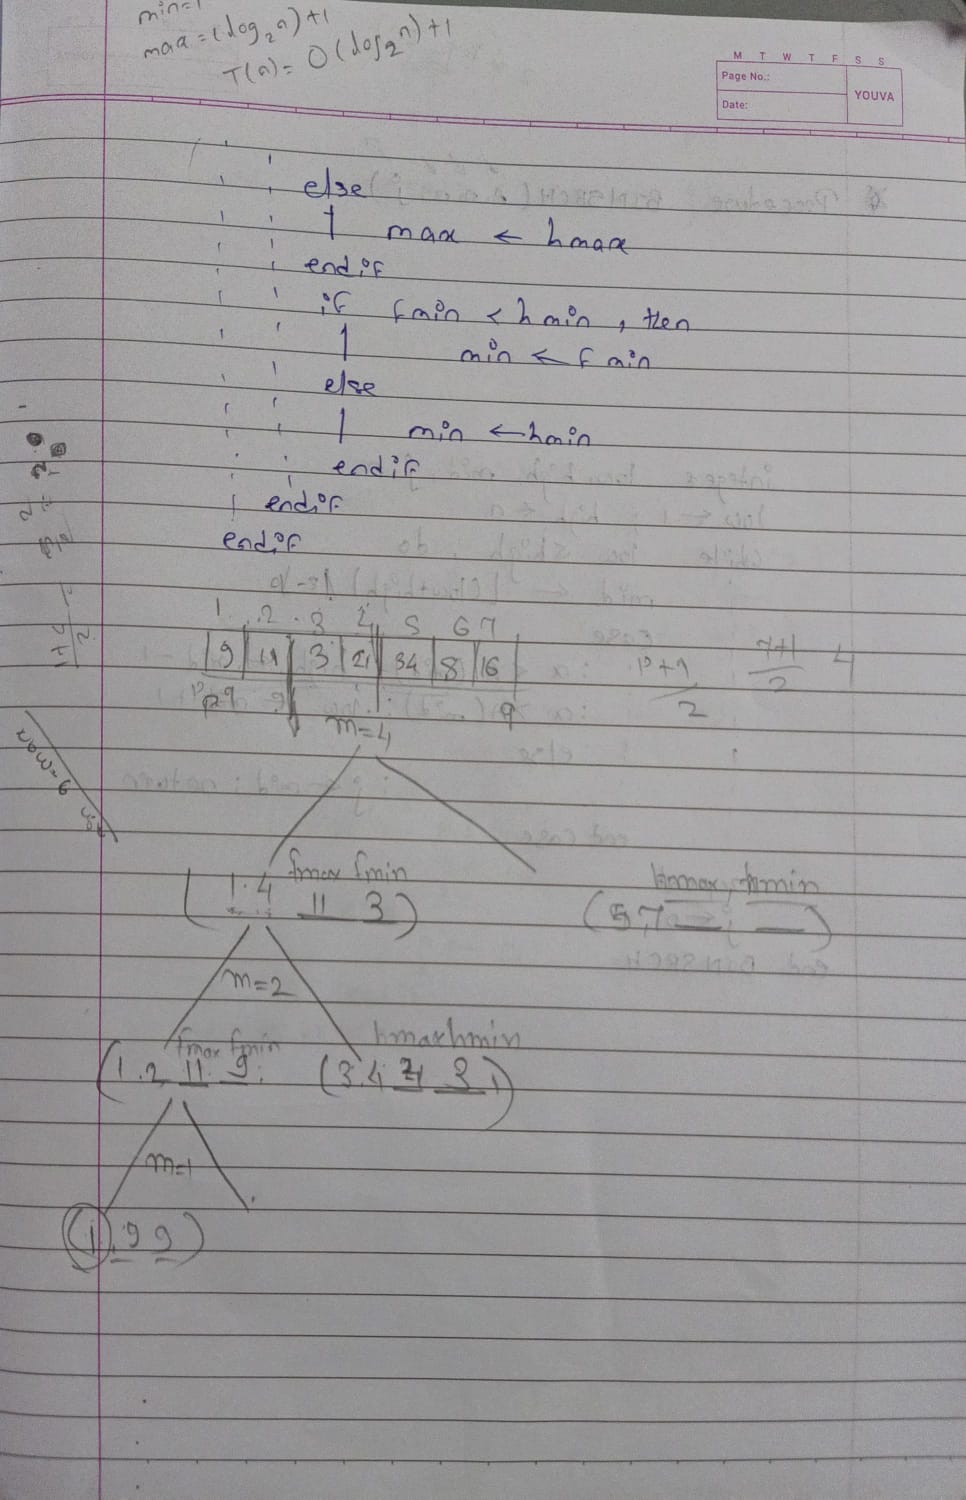 min=1
max=(log2 n)+1
T(n)= O(log2 n)+1
M T W T F S S
Page No.:
Date:
YOUVA
else
max ← hmax
endif
if fmin < hmin, then
min ← fmin
else
min ← hmin
endif
endif
endif
1 2 3 4 5 6 7
9 11 3 21 34 8 16
p+q
2
7+1
2
4
m=4
q
fmax fmin
(1.4 11 3)
hmax, hmin
(5,7 __, __)
m=2
fmax fmin
(1.2 11 9.
hmax hmin
(3.4 21 3)
m=1
(1. 9 9)
1+4
2
max=6